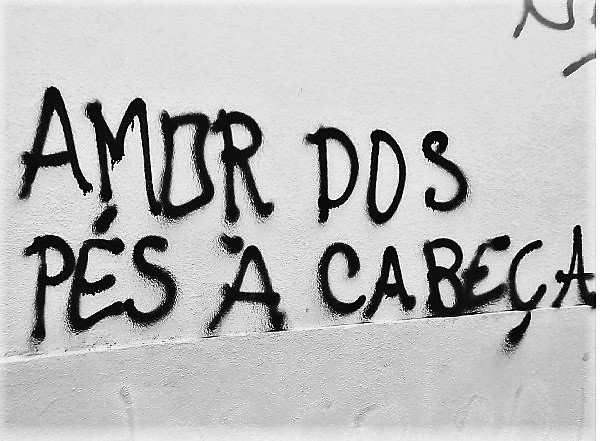 AMOR DOS
PÉS À CABEÇA